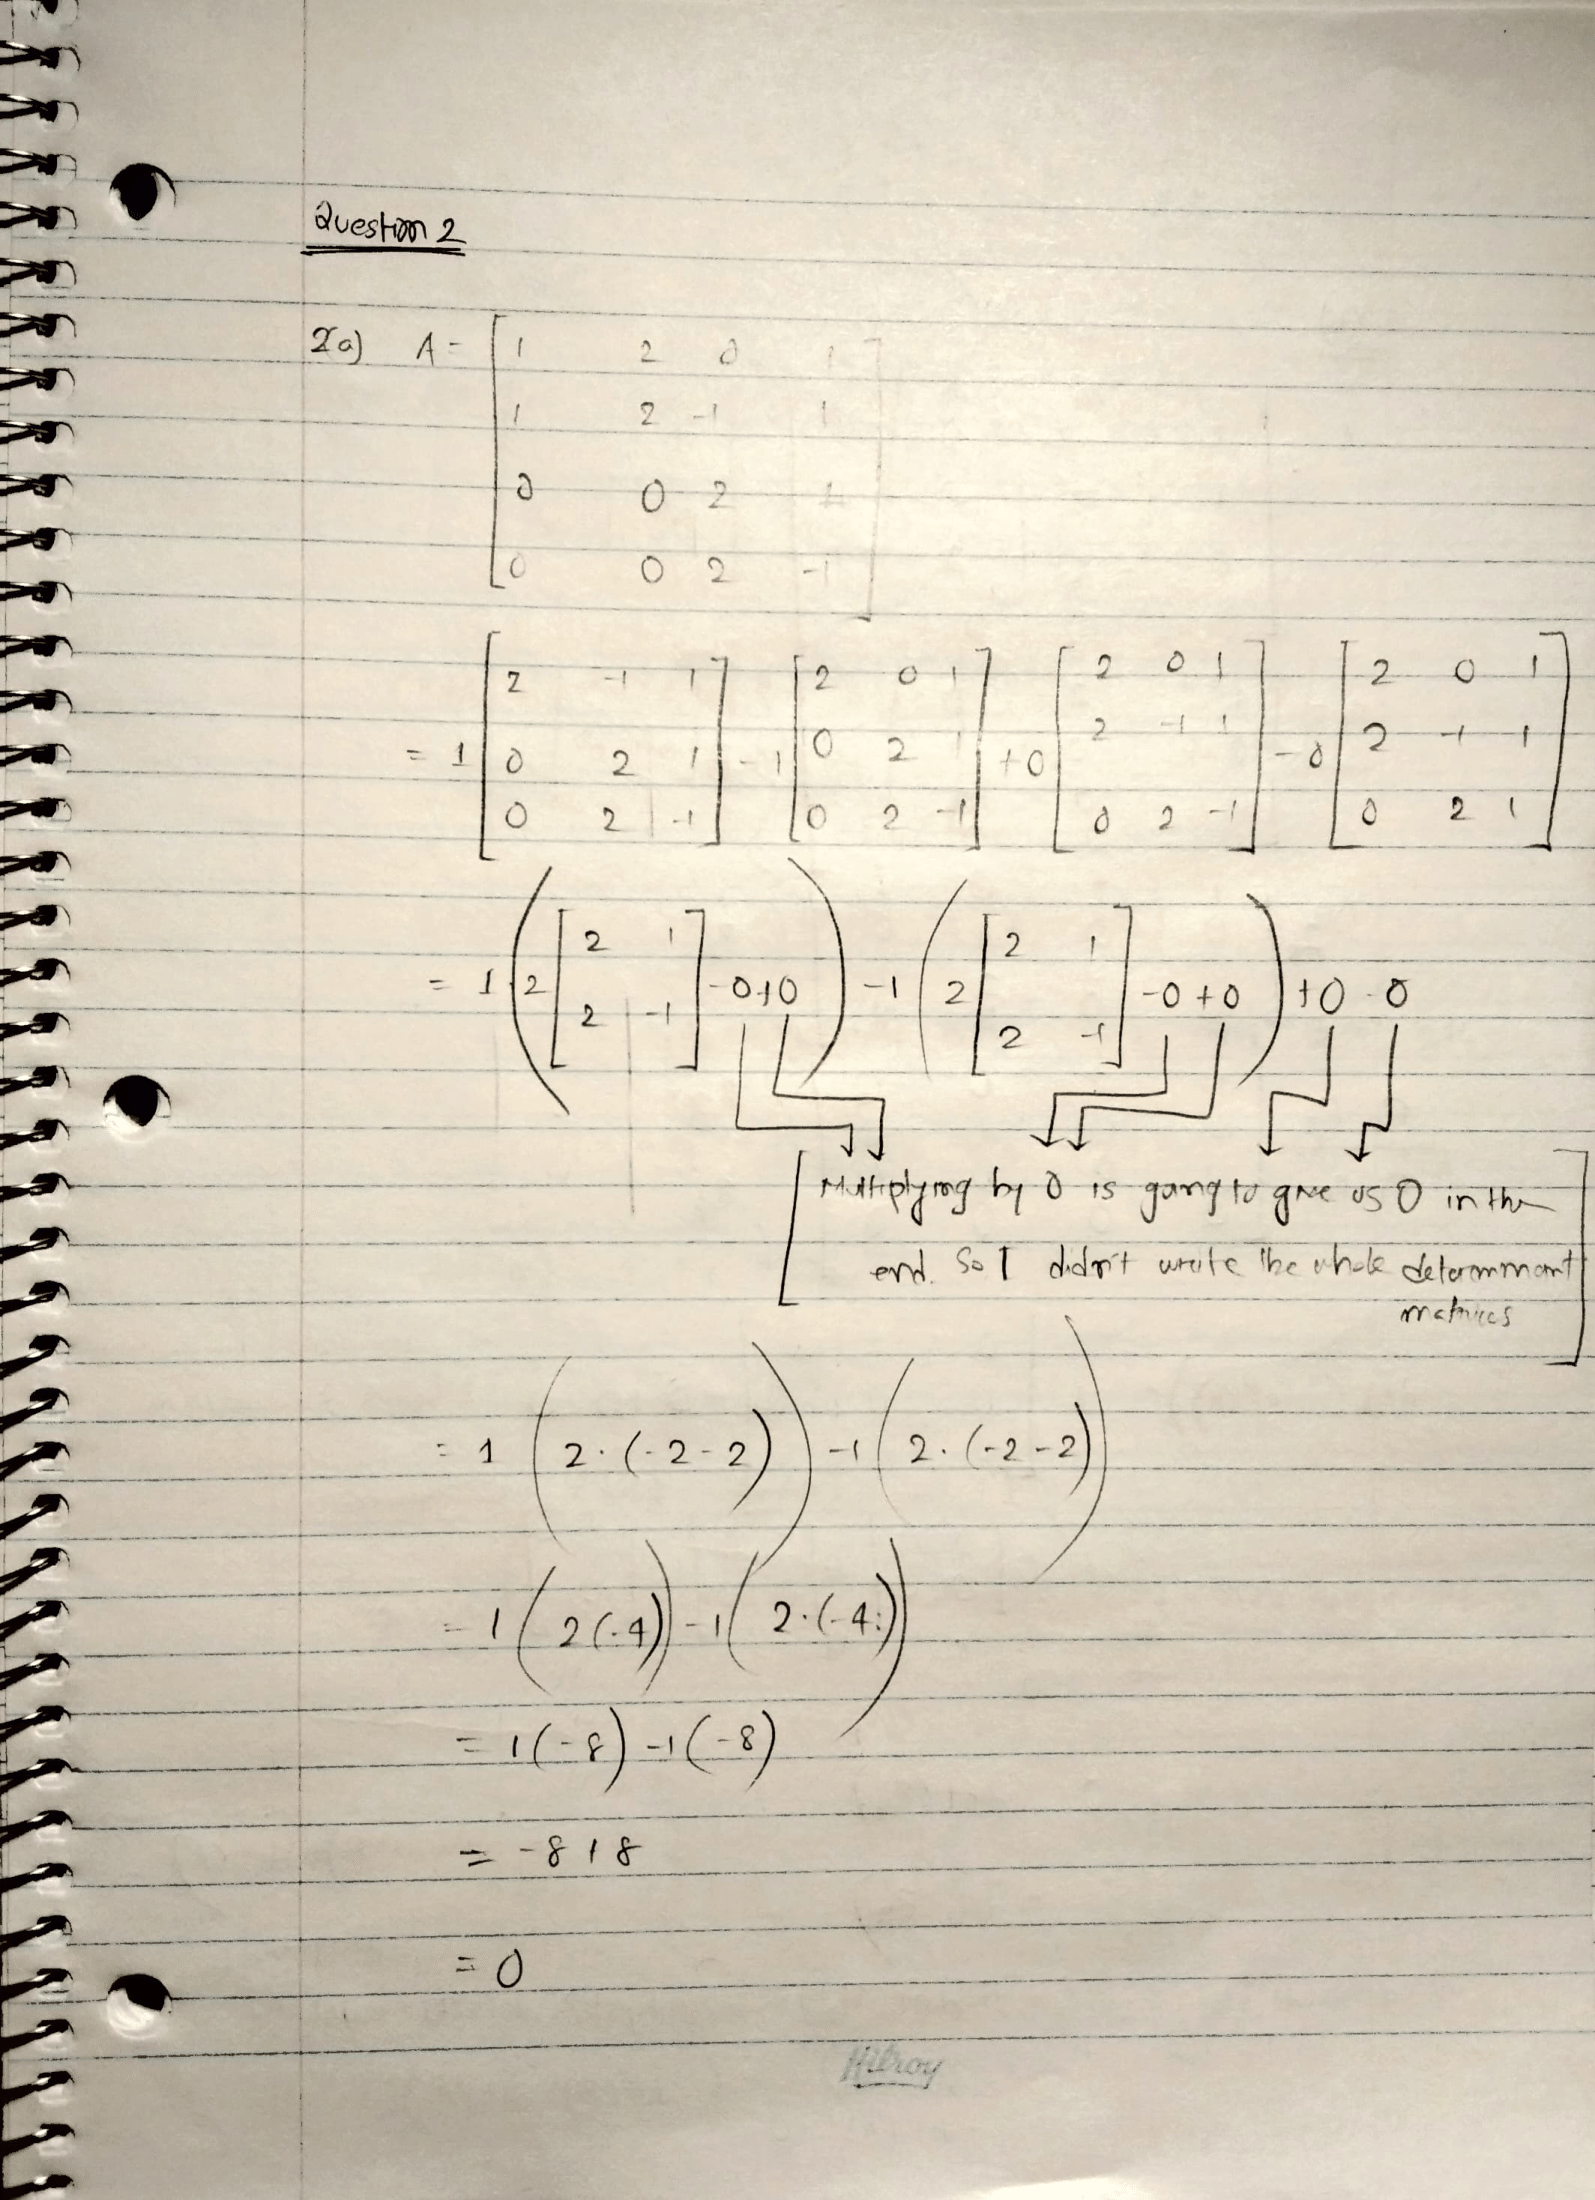 Question 2
2a) A = [ 1 2 0 1
1 2 -1 1
0 0 2 1
0 0 2 -1 ]
= 1 [ 2 -1 1 ; 0 2 1 ; 0 2 -1 ] - 1 [ 2 0 1 ; 0 2 1 ; 0 2 -1 ] + 0 [ 2 0 1 ; 2 -1 1 ; 0 2 -1 ] - 0 [ 2 0 1 ; 2 -1 1 ; 0 2 1 ]
= 1 ( 2 [ 2 1 ; 2 -1 ] - 0 + 0 ) - 1 ( 2 [ 2 1 ; 2 -1 ] - 0 + 0 ) + 0 - 0
[ Multiplying by 0 is going to give us 0 in the
end. So I didn't write the whole determinant
matrices ]
= 1 ( 2 · (-2 - 2) ) - 1 ( 2 · (-2 - 2) )
= 1 ( 2 (-4) ) - 1 ( 2 · (-4) )
= 1 (-8) - 1 (-8)
= -8 + 8
= 0
Hilroy